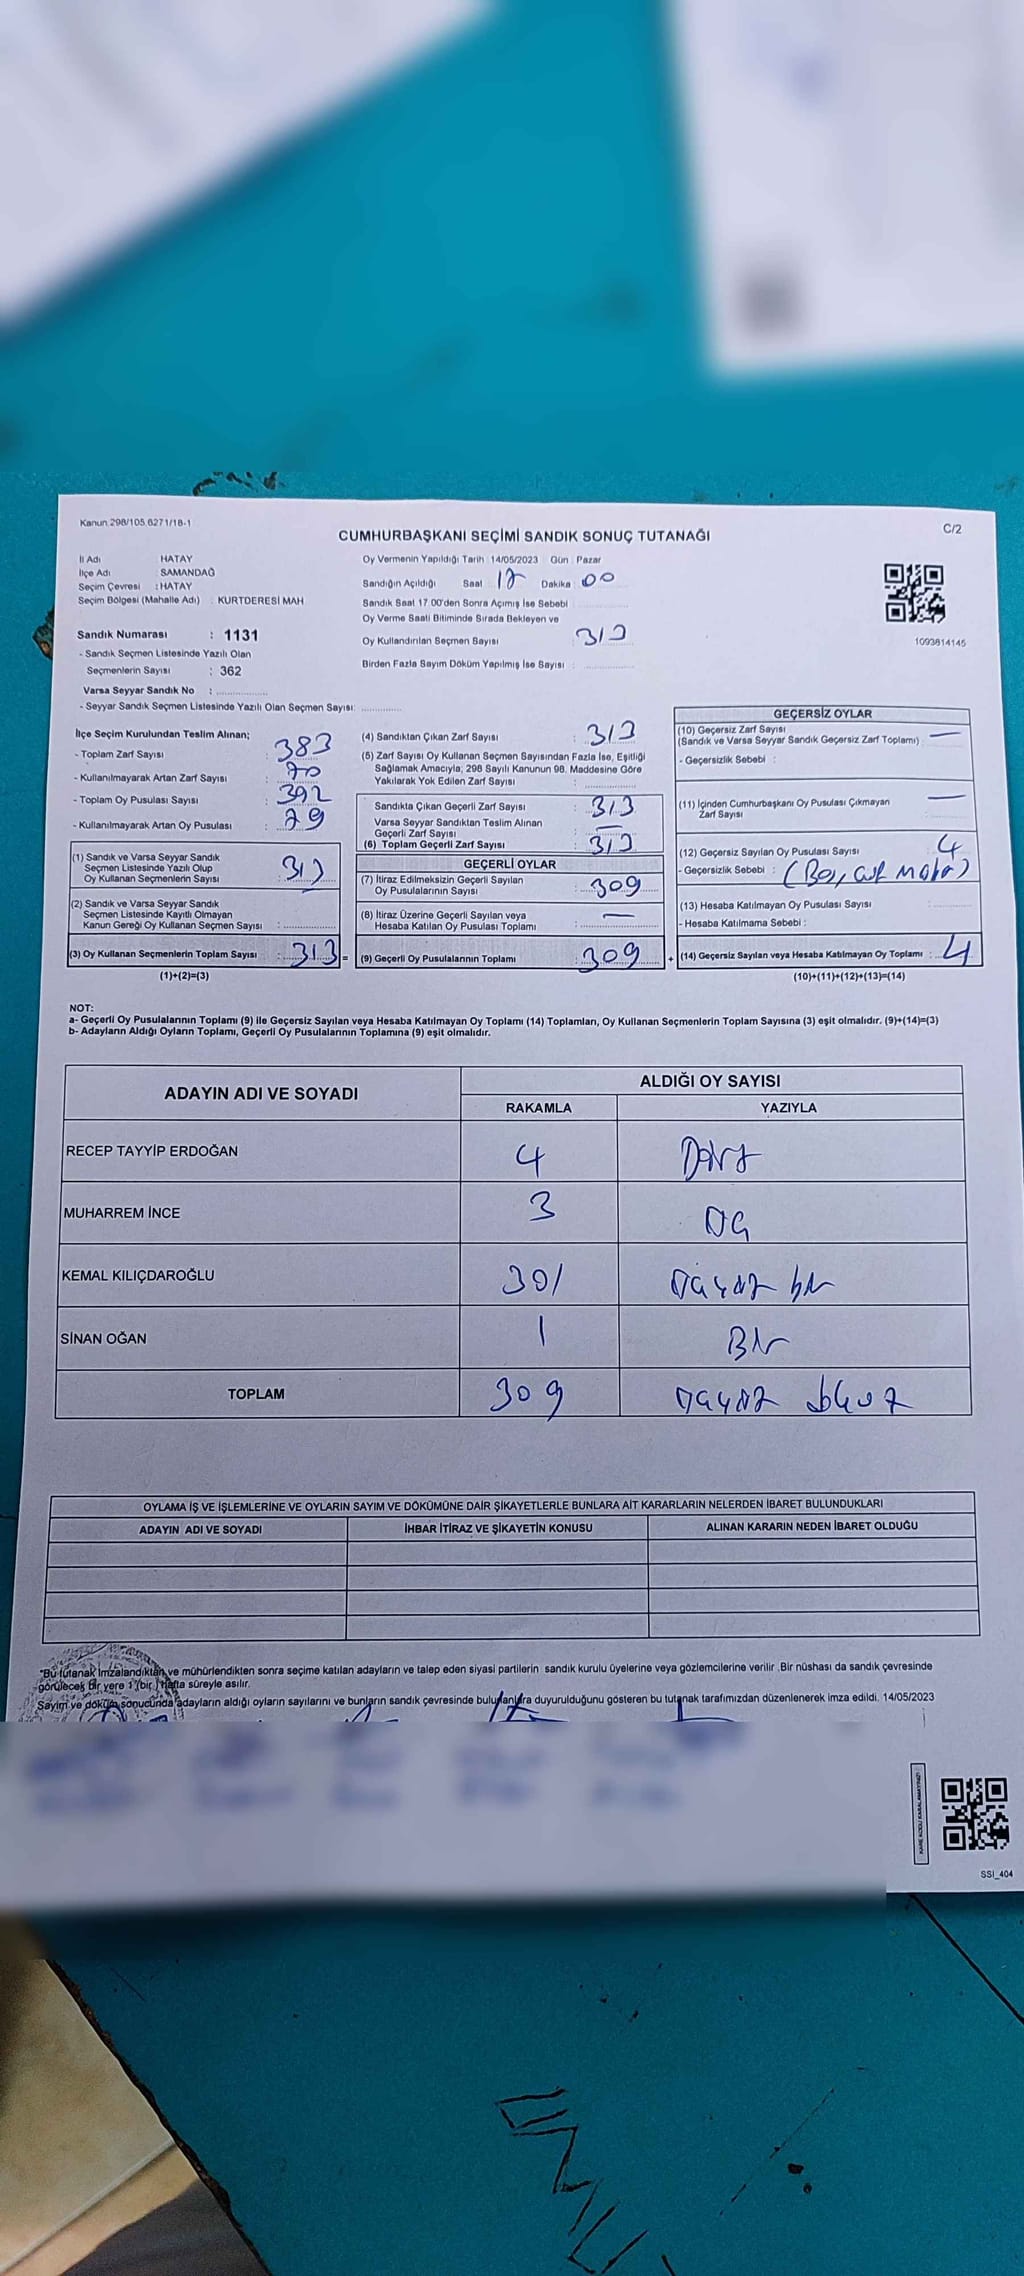 Kanun 298/105 6271/18-1
CUMHURBAŞKANI SEÇİMİ SANDIK SONUÇ TUTANAĞI
C/2
İl Adı HATAY
İlçe Adı : SAMANDAĞ
Seçim Çevresi : HATAY
Seçim Bölgesi (Mahalle Adı) : KURTDERESİ MAH
Sandık Numarası : 1131
- Sandık Seçmen Listesinde Yazılı Olan
Seçmenlerin Sayısı : 362
Varsa Seyyar Sandık No :
- Seyyar Sandık Seçmen Listesinde Yazılı Olan Seçmen Sayısı:
Oy Vermenin Yapıldığı Tarih : 14/05/2023 Gün : Pazar
Sandığın Açıldığı Saat 17 Dakika 00
Sandık Saat 17.00'den Sonra Açımış İse Sebebi
Oy Verme Saati Bitiminde Sırada Bekleyen ve
Oy Kullandırılan Seçmen Sayısı : 313
Birden Fazla Sayım Döküm Yapılmış İse Sayısı :
1093814145
İlçe Seçim Kurulundan Teslim Alınan;
- Toplam Zarf Sayısı : 383
- Kullanılmayarak Artan Zarf Sayısı : 70
- Toplam Oy Pusulası Sayısı : 392
- Kullanılmayarak Artan Oy Pusulası : 79
(1) Sandık ve Varsa Seyyar Sandık
Seçmen Listesinde Yazılı Olup
Oy Kullanan Seçmenlerin Sayısı : 313
(2) Sandık ve Varsa Seyyar Sandık
Seçmen Listesinde Kayıtlı Olmayan
Kanun Gereği Oy Kullanan Seçmen Sayısı :
(3) Oy Kullanan Seçmenlerin Toplam Sayısı : 313 =
(1)+(2)=(3)
(4) Sandıktan Çıkan Zarf Sayısı : 313
(5) Zarf Sayısı Oy Kullanan Seçmen Sayısından Fazla İse, Eşitliği
Sağlamak Amacıyla; 298 Sayılı Kanunun 98. Maddesine Göre
Yakılarak Yok Edilen Zarf Sayısı :
Sandıkta Çıkan Geçerli Zarf Sayısı : 313
Varsa Seyyar Sandıktan Teslim Alınan
Geçerli Zarf Sayısı : —
(6) Toplam Geçerli Zarf Sayısı : 313
GEÇERLİ OYLAR
(7) İtiraz Edilmeksizin Geçerli Sayılan
Oy Pusulalarının Sayısı : 309
(8) İtiraz Üzerine Geçerli Sayılan veya
Hesaba Katılan Oy Pusulası Toplamı : —
(9) Geçerli Oy Pusulalarının Toplamı : 309 +
GEÇERSİZ OYLAR
(10) Geçersiz Zarf Sayısı
(Sandık ve Varsa Seyyar Sandık Geçersiz Zarf Toplamı) : —
- Geçersizlik Sebebi :
(11) İçinden Cumhurbaşkanı Oy Pusulası Çıkmayan
Zarf Sayısı : —
(12) Geçersiz Sayılan Oy Pusulası Sayısı : 4
- Geçersizlik Sebebi :
(13) Hesaba Katılmayan Oy Pusulası Sayısı :
- Hesaba Katılmama Sebebi :
(14) Geçersiz Sayılan veya Hesaba Katılmayan Oy Toplamı : 4
(10)+(11)+(12)+(13)=(14)
NOT:
a- Geçerli Oy Pusulalarının Toplamı (9) ile Geçersiz Sayılan veya Hesaba Katılmayan Oy Toplamı (14) Toplamları, Oy Kullanan Seçmenlerin Toplam Sayısına (3) eşit olmalıdır. (9)+(14)=(3)
b- Adayların Aldığı Oyların Toplamı, Geçerli Oy Pusulalarının Toplamına (9) eşit olmalıdır.
ADAYIN ADI VE SOYADI
ALDIĞI OY SAYISI
RAKAMLA YAZIYLA
RECEP TAYYİP ERDOĞAN 4 Dört
MUHARREM İNCE 3 üç
KEMAL KILIÇDAROĞLU 301 üçyüz bir
SİNAN OĞAN 1 Bir
TOPLAM 309 üçyüz dokuz
OYLAMA İŞ VE İŞLEMLERİNE VE OYLARIN SAYIM VE DÖKÜMÜNE DAİR ŞİKAYETLERLE BUNLARA AİT KARARLARIN NELERDEN İBARET BULUNDUKLARI
ADAYIN ADI VE SOYADI İHBAR İTİRAZ VE ŞİKAYETİN KONUSU ALINAN KARARIN NEDEN İBARET OLDUĞU
"Bu tutanak İmzalandıktan ve mühürlendikten sonra seçime katılan adayların ve talep eden siyasi partilerin sandık kurulu üyelerine veya gözlemcilerine verilir .Bir nüshası da sandık çevresinde
görülecek bir yere 1 (bir ) hafta süreyle asılır.
Sayım ve döküm sonucunda adayların aldığı oyların sayılarını ve bunların sandık çevresinde bulunanlara duyurulduğunu gösteren bu tutanak tarafımızdan düzenlenerek imza edildi. 14/05/2023
KARE KODU KARALAMAYINIZ!
SSI_404